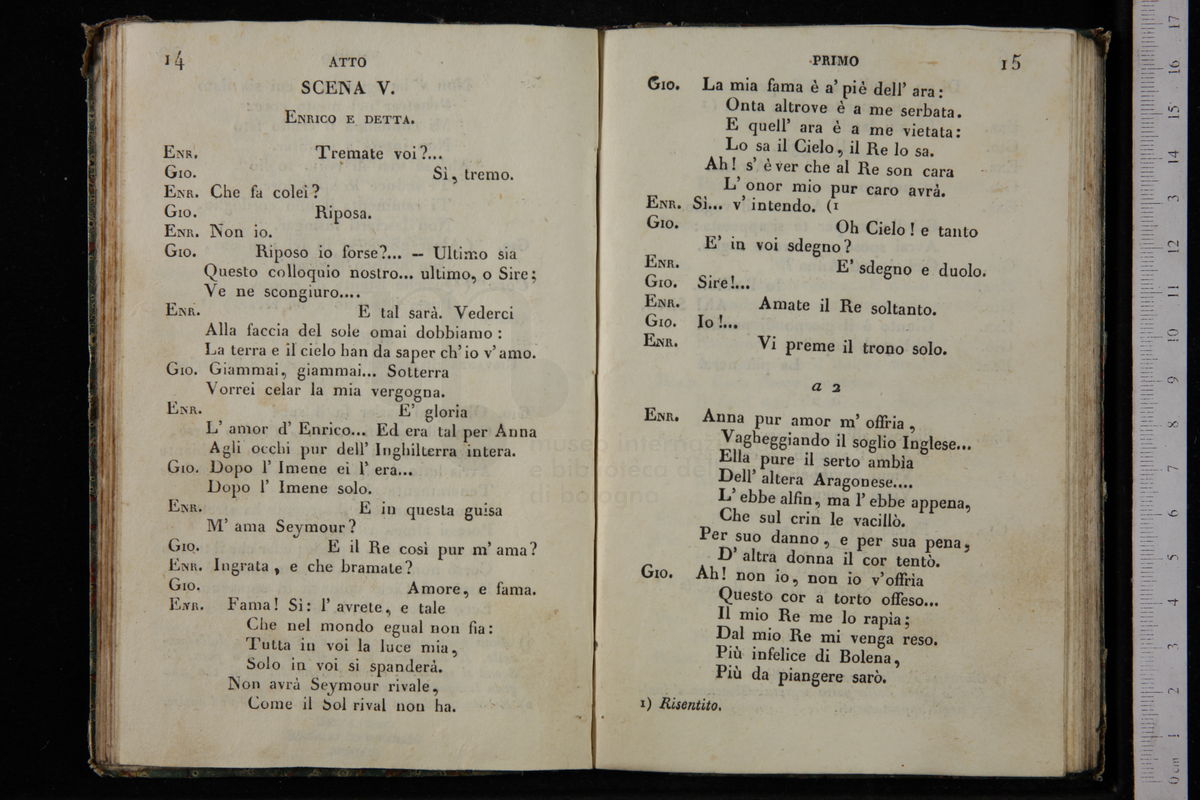 14
ATTO
SCENA V.
ENRICO E DETTA.
ENR. Tremate voi?...
GIO. Sì, tremo.
ENR. Che fa colei?
GIO. Riposa.
ENR. Non io.
GIO. Riposo io forse?... — Ultimo sia
Questo colloquio nostro... ultimo, o Sire;
Ve ne scongiuro....
ENR. E tal sarà. Vederci
Alla faccia del sole omai dobbiamo:
La terra e il cielo han da saper ch' io v' amo.
GIO. Giammai, giammai... Sotterra
Vorrei celar la mia vergogna.
ENR. E' gloria
L' amor d' Enrico... Ed era tal per Anna
Agli occhi pur dell' Inghilterra intera.
GIO. Dopo l' Imene ei l' era...
Dopo l' Imene solo.
ENR. E in questa guisa
M' ama Seymour?
GIO. E il Re così pur m' ama?
ENR. Ingrata, e che bramate?
GIO. Amore, e fama.
ENR. Fama! Sì: l' avrete, e tale
Che nel mondo egual non fia:
Tutta in voi la luce mia,
Solo in voi si spanderà.
Non avrà Seymour rivale,
Come il Sol rival non ha.
PRIMO
15
GIO. La mia fama è a' piè dell' ara:
Onta altrove è a me serbata.
E quell' ara è a me vietata:
Lo sa il Cielo, il Re lo sa.
Ah! s' è ver che al Re son cara
L' onor mio pur caro avrà.
ENR. Sì... v' intendo. (1
GIO. Oh Cielo! e tanto
E' in voi sdegno?
ENR. E' sdegno e duolo.
GIO. Sire!...
ENR. Amate il Re soltanto.
GIO. Io!...
ENR. Vi preme il trono solo.
a 2
ENR. Anna pur amor m' offria,
Vagheggiando il soglio Inglese...
Ella pure il serto ambìa
Dell' altera Aragonese....
L' ebbe alfin, ma l' ebbe appena,
Che sul crin le vacillò.
Per suo danno, e per sua pena,
D' altra donna il cor tentò.
GIO. Ah! non io, non io v'offria
Questo cor a torto offeso...
Il mio Re me lo rapìa;
Dal mio Re mi venga reso.
Più infelice di Bolena,
Più da piangere sarò.
1) Risentito.
museo internaz
e biblioteca del
di bologna
0 cm 1 2 3 4 5 6 7 8 9 10 11 12 13 14 15 16 17